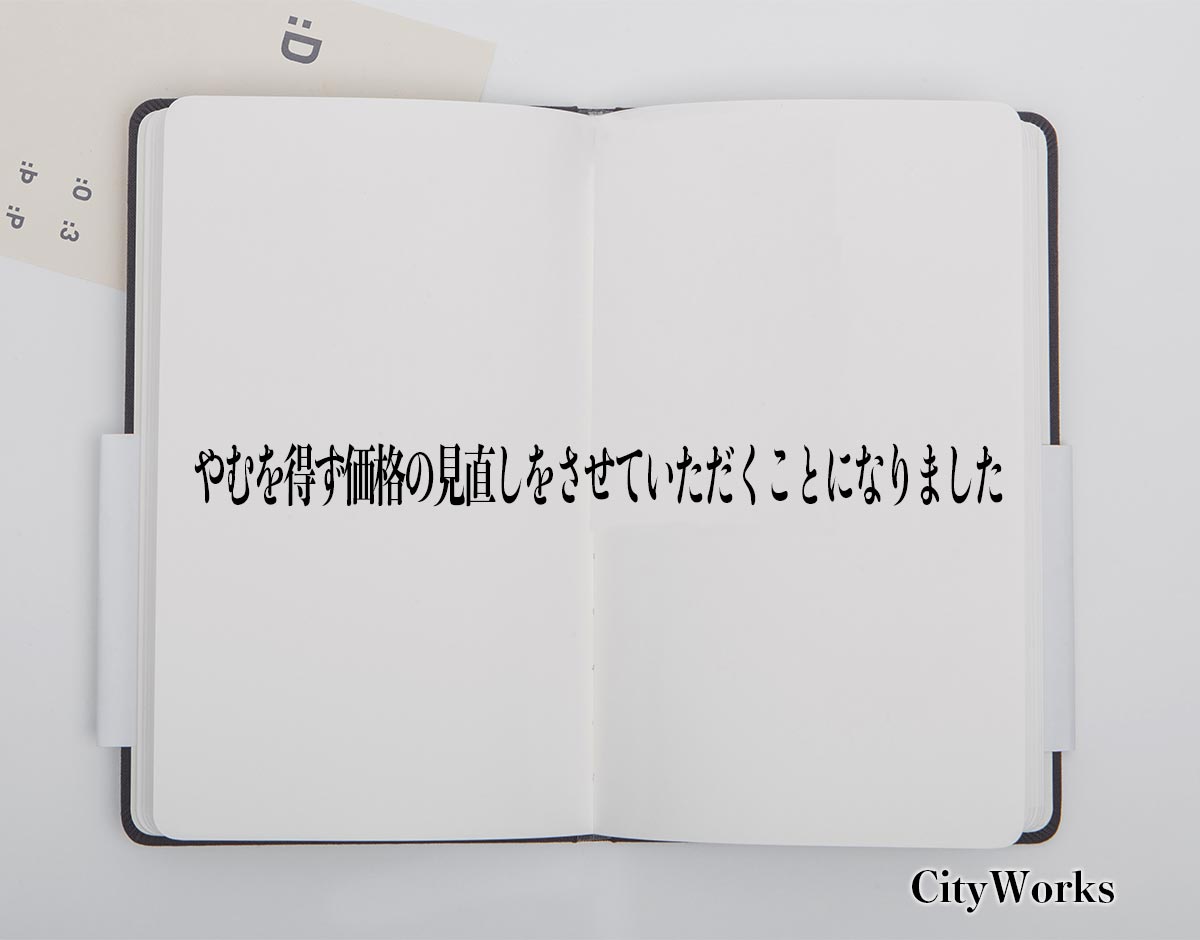 :D
:P
:O
:P
:3
やむを得ず価格の見直しをさせていただくことになりました
CityWorks